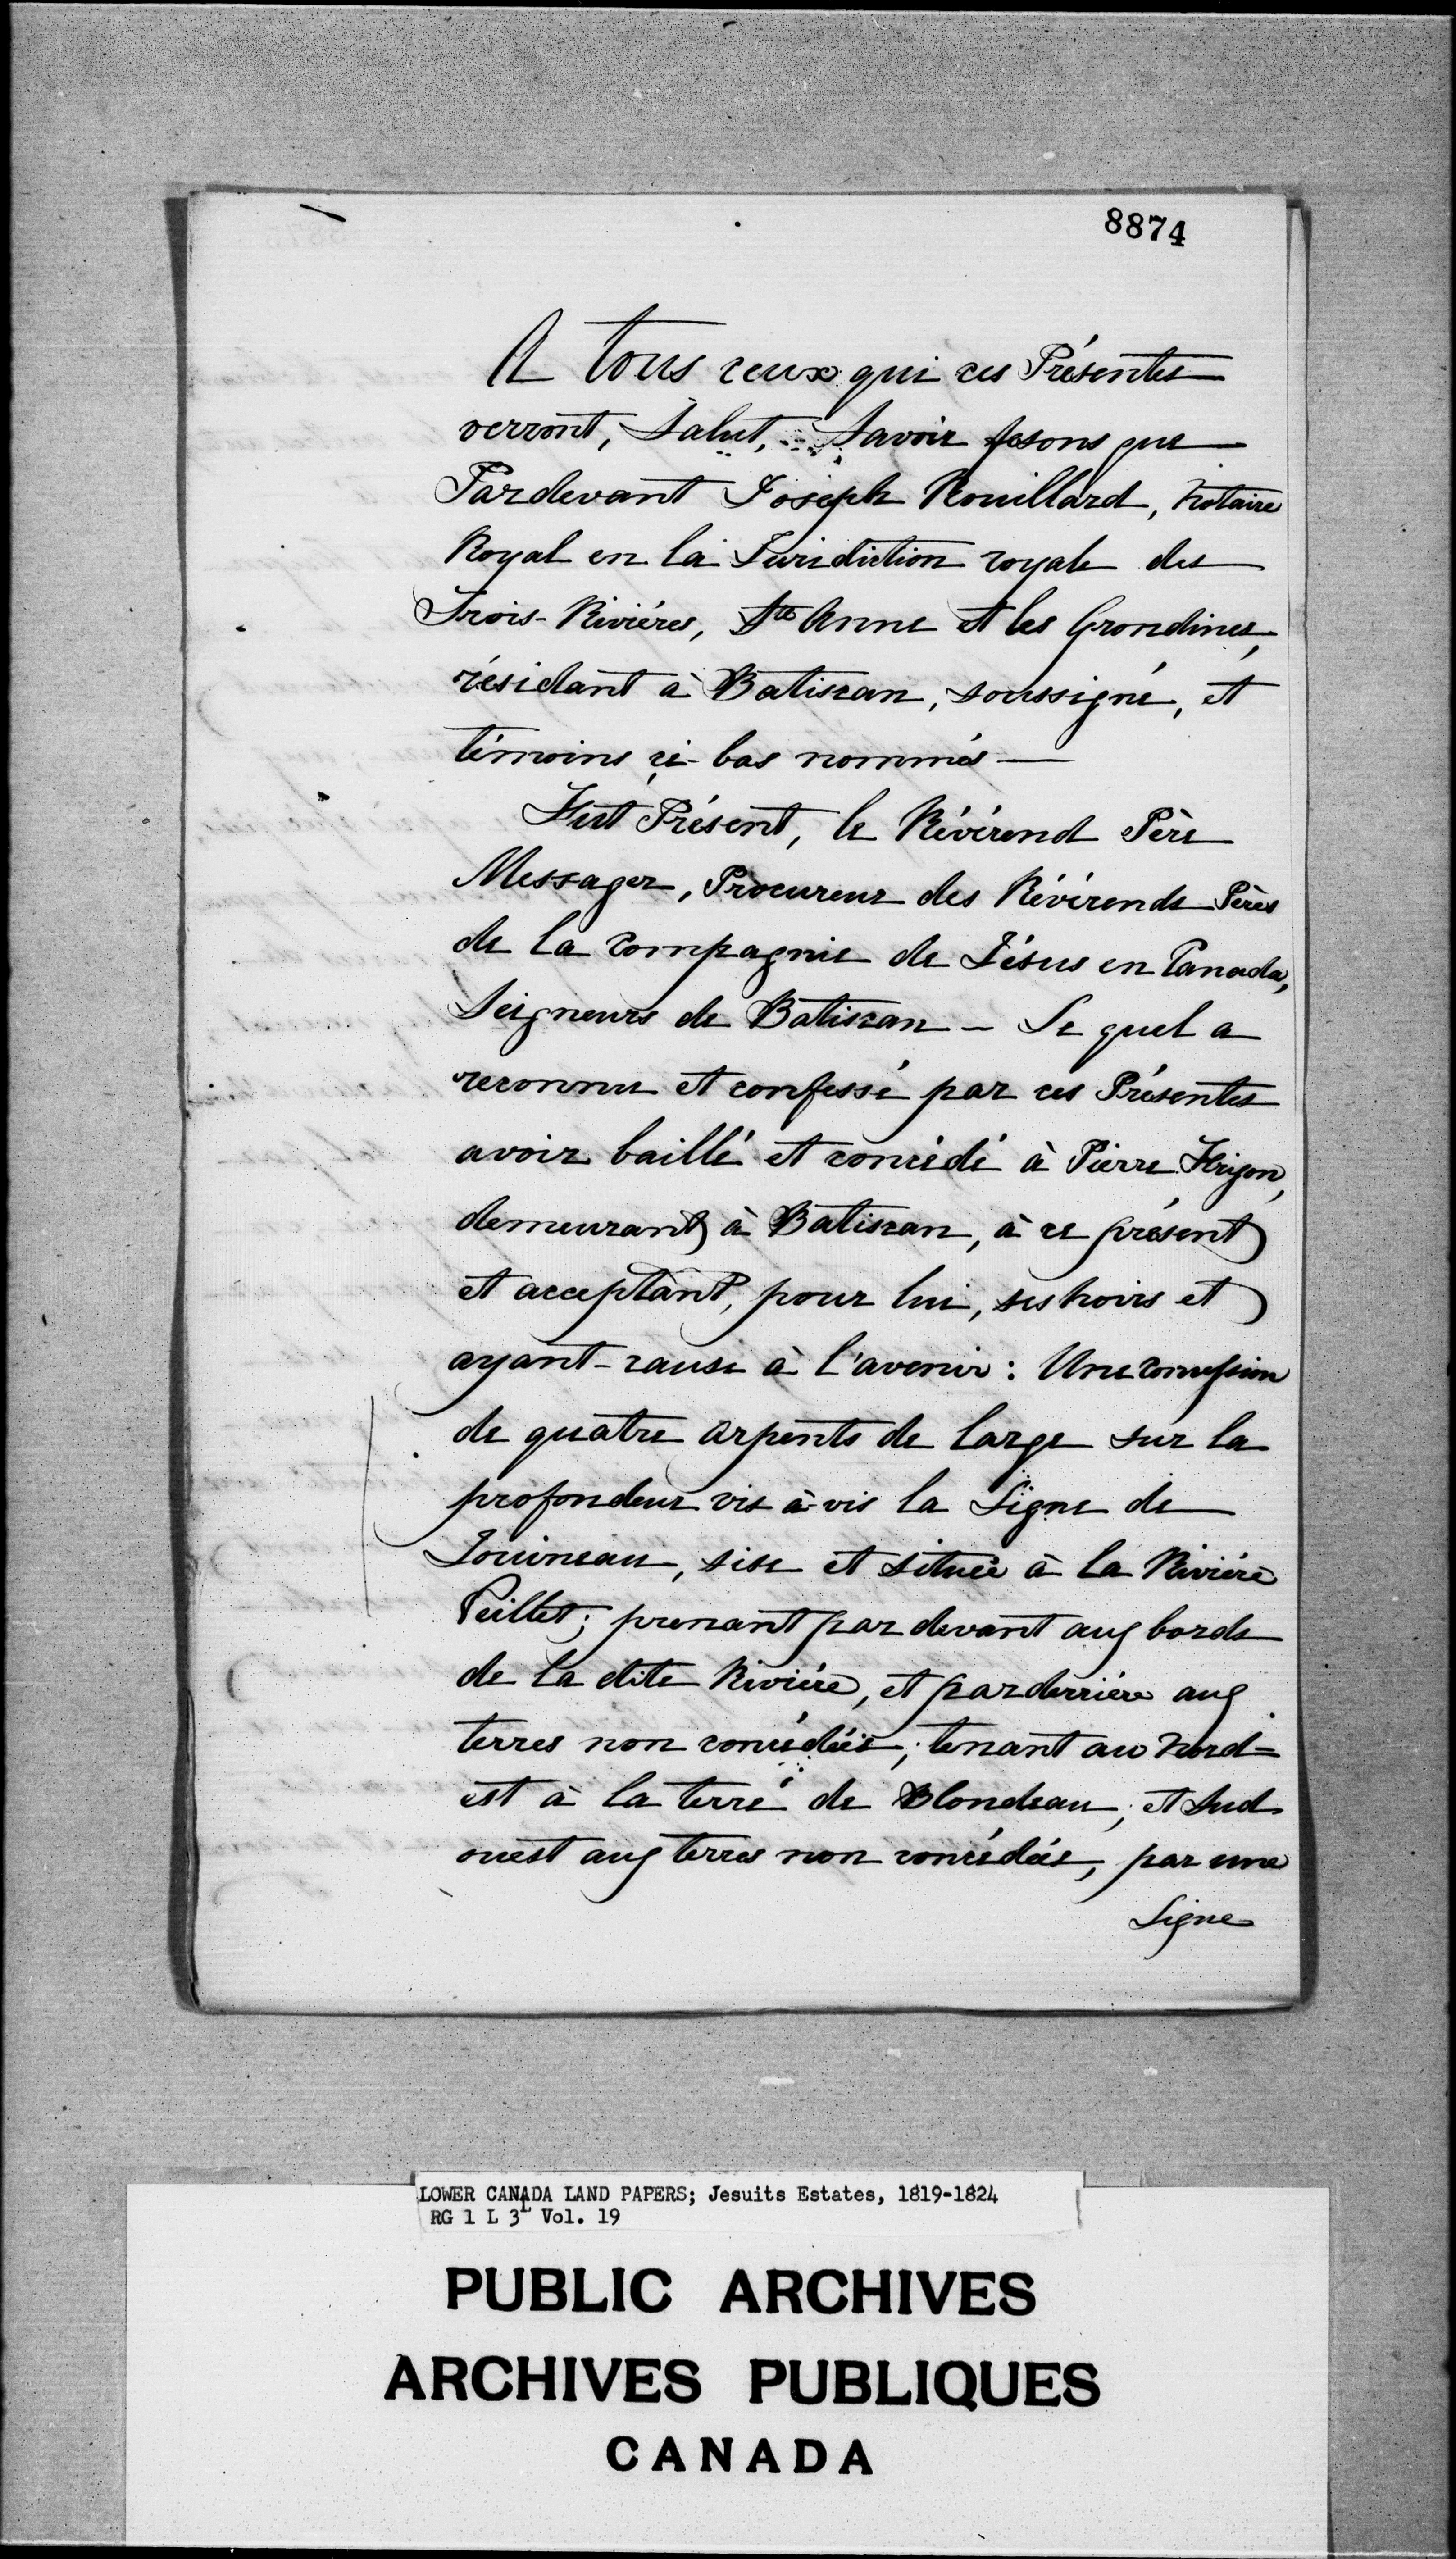 8874
A tous ceux qui ces Présentes
verront, Salut, Savoir fesons que
Pardevant Joseph Rouillard, Notaire
Royal en la Juridiction royale des
Trois-Rivières, Ste Anne et les Grondines,
résidant à Batiscan, soussigné, et
témoins ci-bas nommés —
Fut Présent, le Révérend Père
Messager, Procureur des Révérends Pères
de la Compagnie de Jésus en Canada,
Seigneurs de Batiscan — Le quel a
reconnu et confessé par ces Présentes
avoir baillé et concédé à Pierre Frigon,
demeurant à Batiscan, à ce présent
et acceptant, pour lui, ses hoirs et
ayant-cause à l'avenir : Une concession
de quatre arpents de large sur la
profondeur vis à-vis la Ligne de
Jouineau, sise et située à la Rivière
Veillet; prenant par devant aux bords
de la dite Rivière, et par derrière aux
terres non concédées; tenant au Nord=
est à la terre de Blondeau; et Sud
ouest aux terres non concédées, par une
Ligne
LOWER CANADA LAND PAPERS; Jesuits Estates, 1819-1824
RG 1 L 3L Vol. 19
PUBLIC ARCHIVES
ARCHIVES PUBLIQUES
CANADA